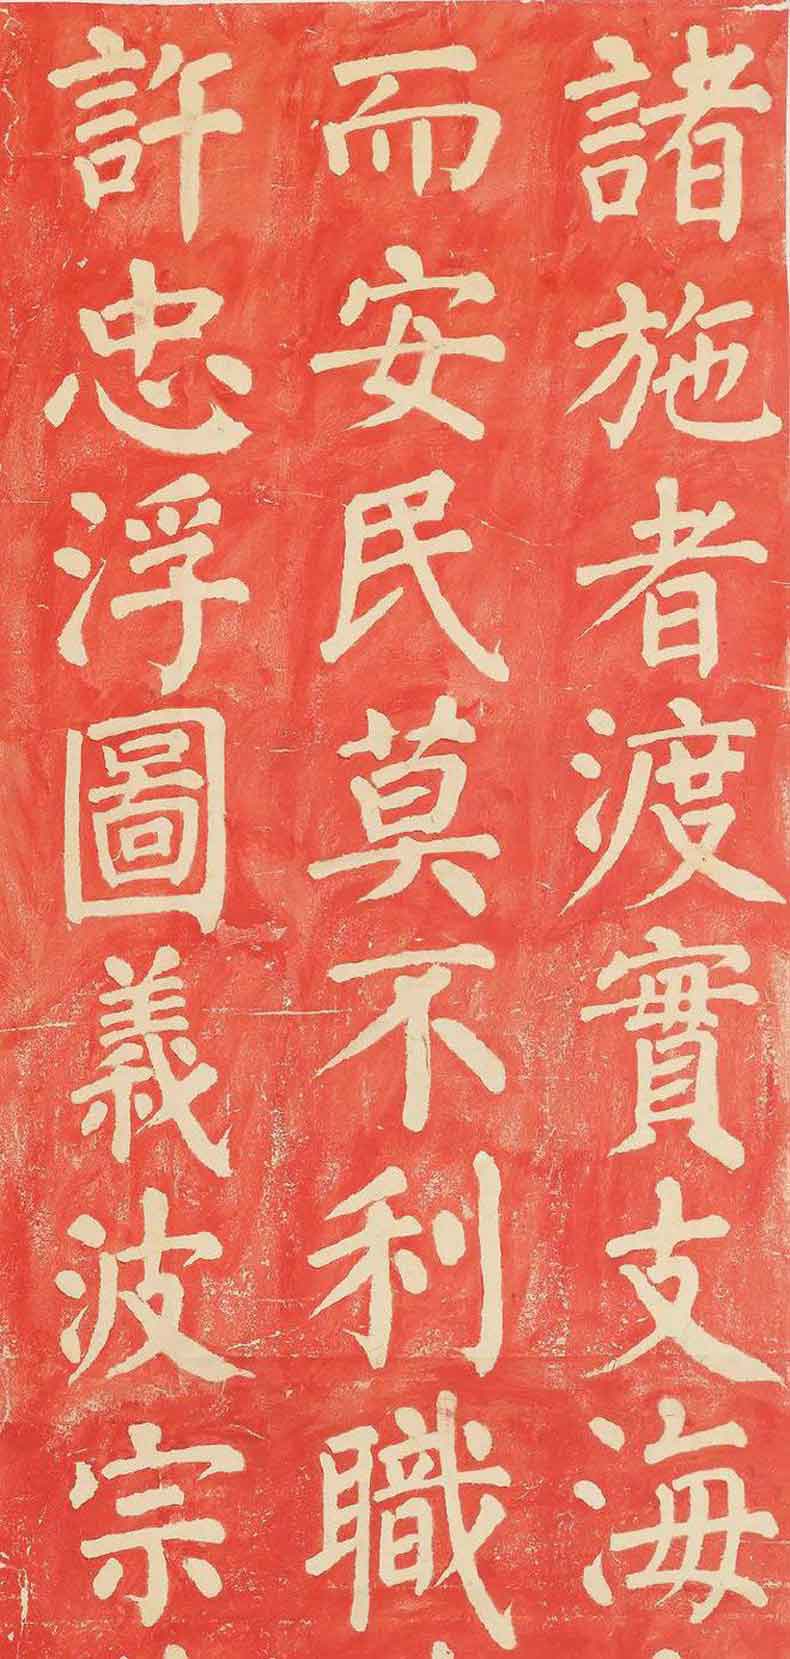 諸施者渡實支海
而安民莫不利職
許忠浮圖義波宗